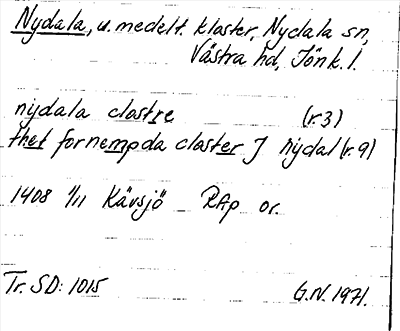 Nydala, u. medelt. kloster, Nydala sn,
Västra hd, Jönk. l.
nydala clostre (r. 3)
thet fornempda closter J nydal (r. 9)
1408 1/11 Kävsjö RAp or.
Tr. SD: 1015 G.N. 1971.